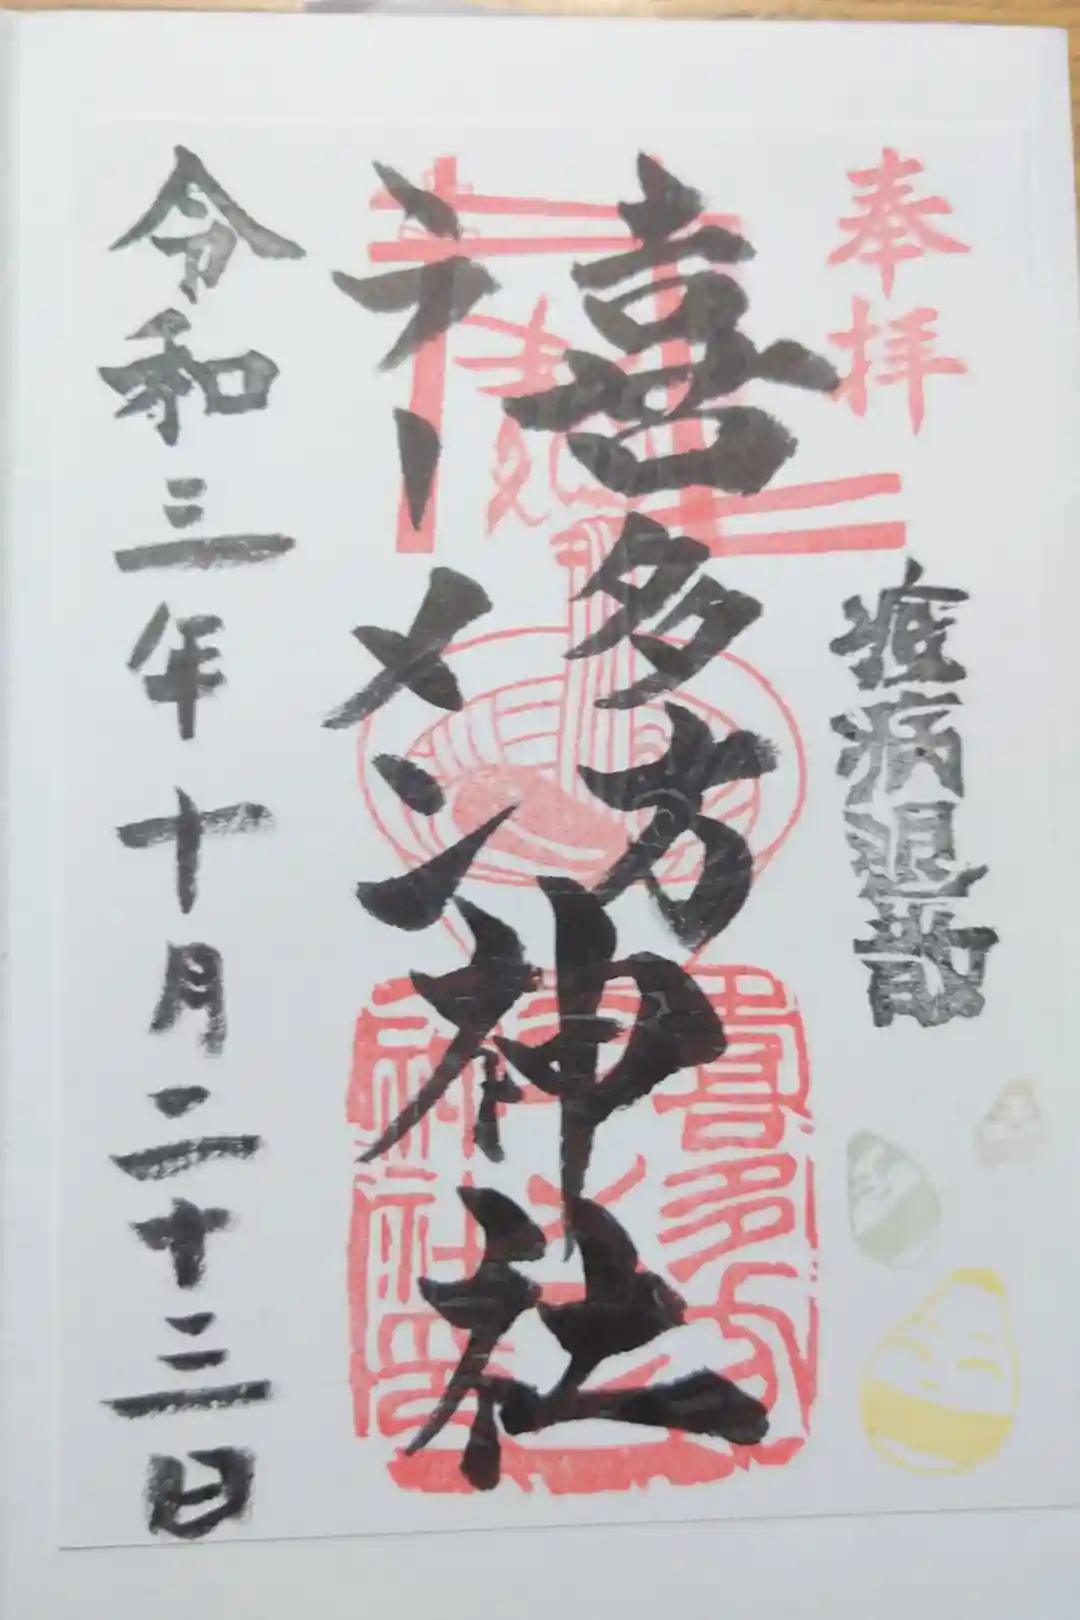 奉拝
疫病退散
喜多方
ラーメン神社
令和三年十月二十三日